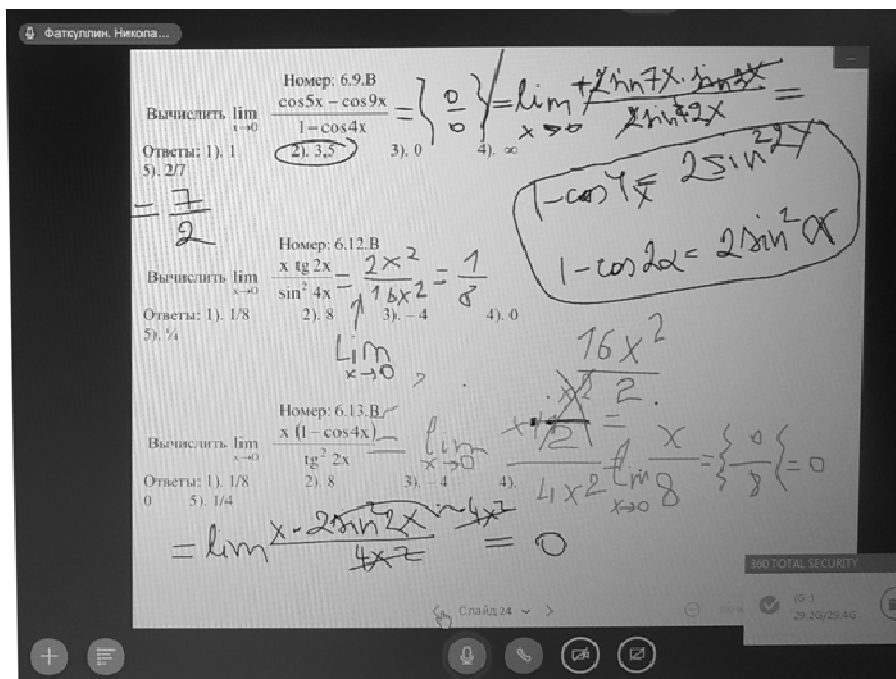 Фаткуллин. Никола...
Номер: 6.9.В
Вычислить lim x→0 (cos5x – cos9x)/(1–cos4x) = {0/0} = lim x→0 +2sin7x·sin2x/2sin²2x =
Ответы: 1). 1 2). 3,5 3). 0 4). ∞
5). 2/7
= 7/2
1-cos4x = 2sin²2x
1-cos2α = 2sin²α
Номер: 6.12.В
Вычислить lim x→0 x tg 2x/sin² 4x = 2x²/16x² = 1/8
Ответы: 1). 1/8 2). 8 3). – 4 4). 0
5). ¼
Lim x→0
16x²/2
Номер: 6.13.В
Вычислить lim x→0 x (1–cos4x)/tg² 2x = lim x→0 4x² = lim x→0 x/8 = {0/8} = 0
Ответы: 1). 1/8 2). 8 3). – 4 4).
0 5). 1/4
= lim x·2sin²2x/4x² ~ 4x² = 0
Слайд 24
360 TOTAL SECURITY
(G:)
29.2G/29.4G